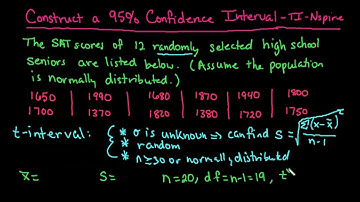 Construct a 95% Confidence Interval - TI-Nspire
The SAT scores of 12 randomly selected high school
Seniors are listed below. (Assume the population
is normally distributed.)
1650 | 1990 | 1680 | 1870 | 1940 | 1800
1700 | 1370 | 1820 | 1380 | 1720 | 1750
t-interval: { * σ is unknown ⇒ can find S = √(Σ(x-x̄)²/(n-1))
* random
* n≥30 or normally distributed
x̄= S= n=20, df=n-1=19, t